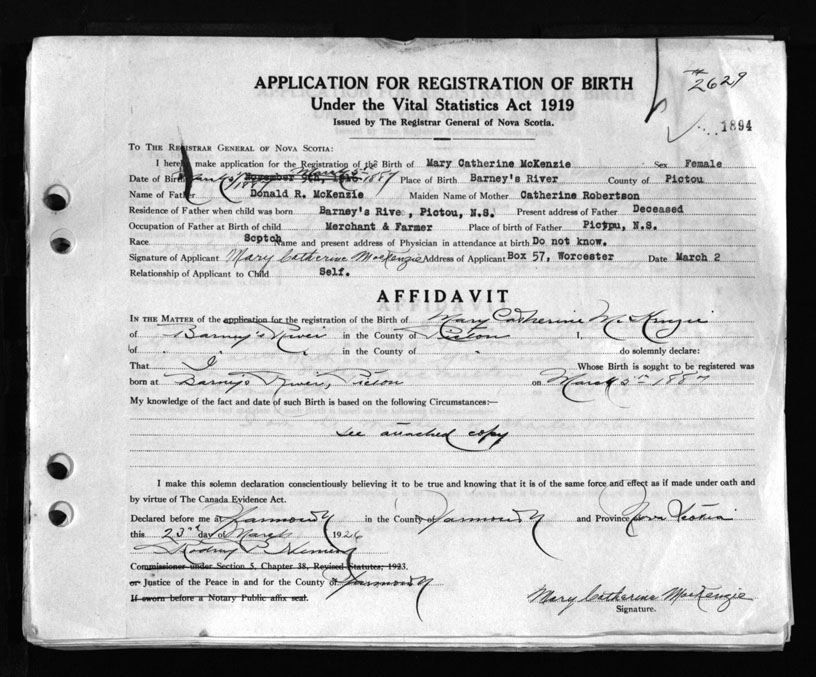 # 2629
APPLICATION FOR REGISTRATION OF BIRTH
Under the Vital Statistics Act 1919
Issued by The Registrar General of Nova Scotia.
1894
TO THE REGISTRAR GENERAL OF NOVA SCOTIA:
I hereby make application for the Registration of the Birth of Mary Catherine McKenzie Sex Female
Date of Birth March 5th 1887 Place of Birth Barney's River County of Pictou
Name of Father Donald R. McKenzie Maiden Name of Mother Catherine Robertson
Residence of Father when child was born Barney's Rive , Pictou, N.S. Present address of Father Deceased
Occupation of Father at Birth of child Merchant & Farmer Place of birth of Father Pictpu, N.S.
Race Scptch Name and present address of Physician in attendance at birth Do not know.
Signature of Applicant Mary Catherine MacKenzie Address of Applicant Box 57, Worcester Date March 2
Relationship of Applicant to Child Self.
AFFIDAVIT
IN THE MATTER of the application for the registration of the Birth of Mary Catherine McKenzie
of Barney's River in the County of Pictou I,
of in the County of do solemnly declare:
That I Whose Birth is sought to be registered was
born at Barney's River, Pictou on March 5th 1887
My knowledge of the fact and date of such Birth is based on the following Circumstances:—
see attached copy
I make this solemn declaration conscientiously believing it to be true and knowing that it is of the same force and effect as if made under oath and
by virtue of The Canada Evidence Act.
Declared before me at Yarmouth in the County of Yarmouth and Province Nova Scotia
this 23rd day of March 1926
Commissioner under Section 5, Chapter 38, Revised Statutes, 1923.
or Justice of the Peace in and for the County of Yarmouth
If sworn before a Notary Public affix seal.
Mary Catherine MacKenzie
Signature.